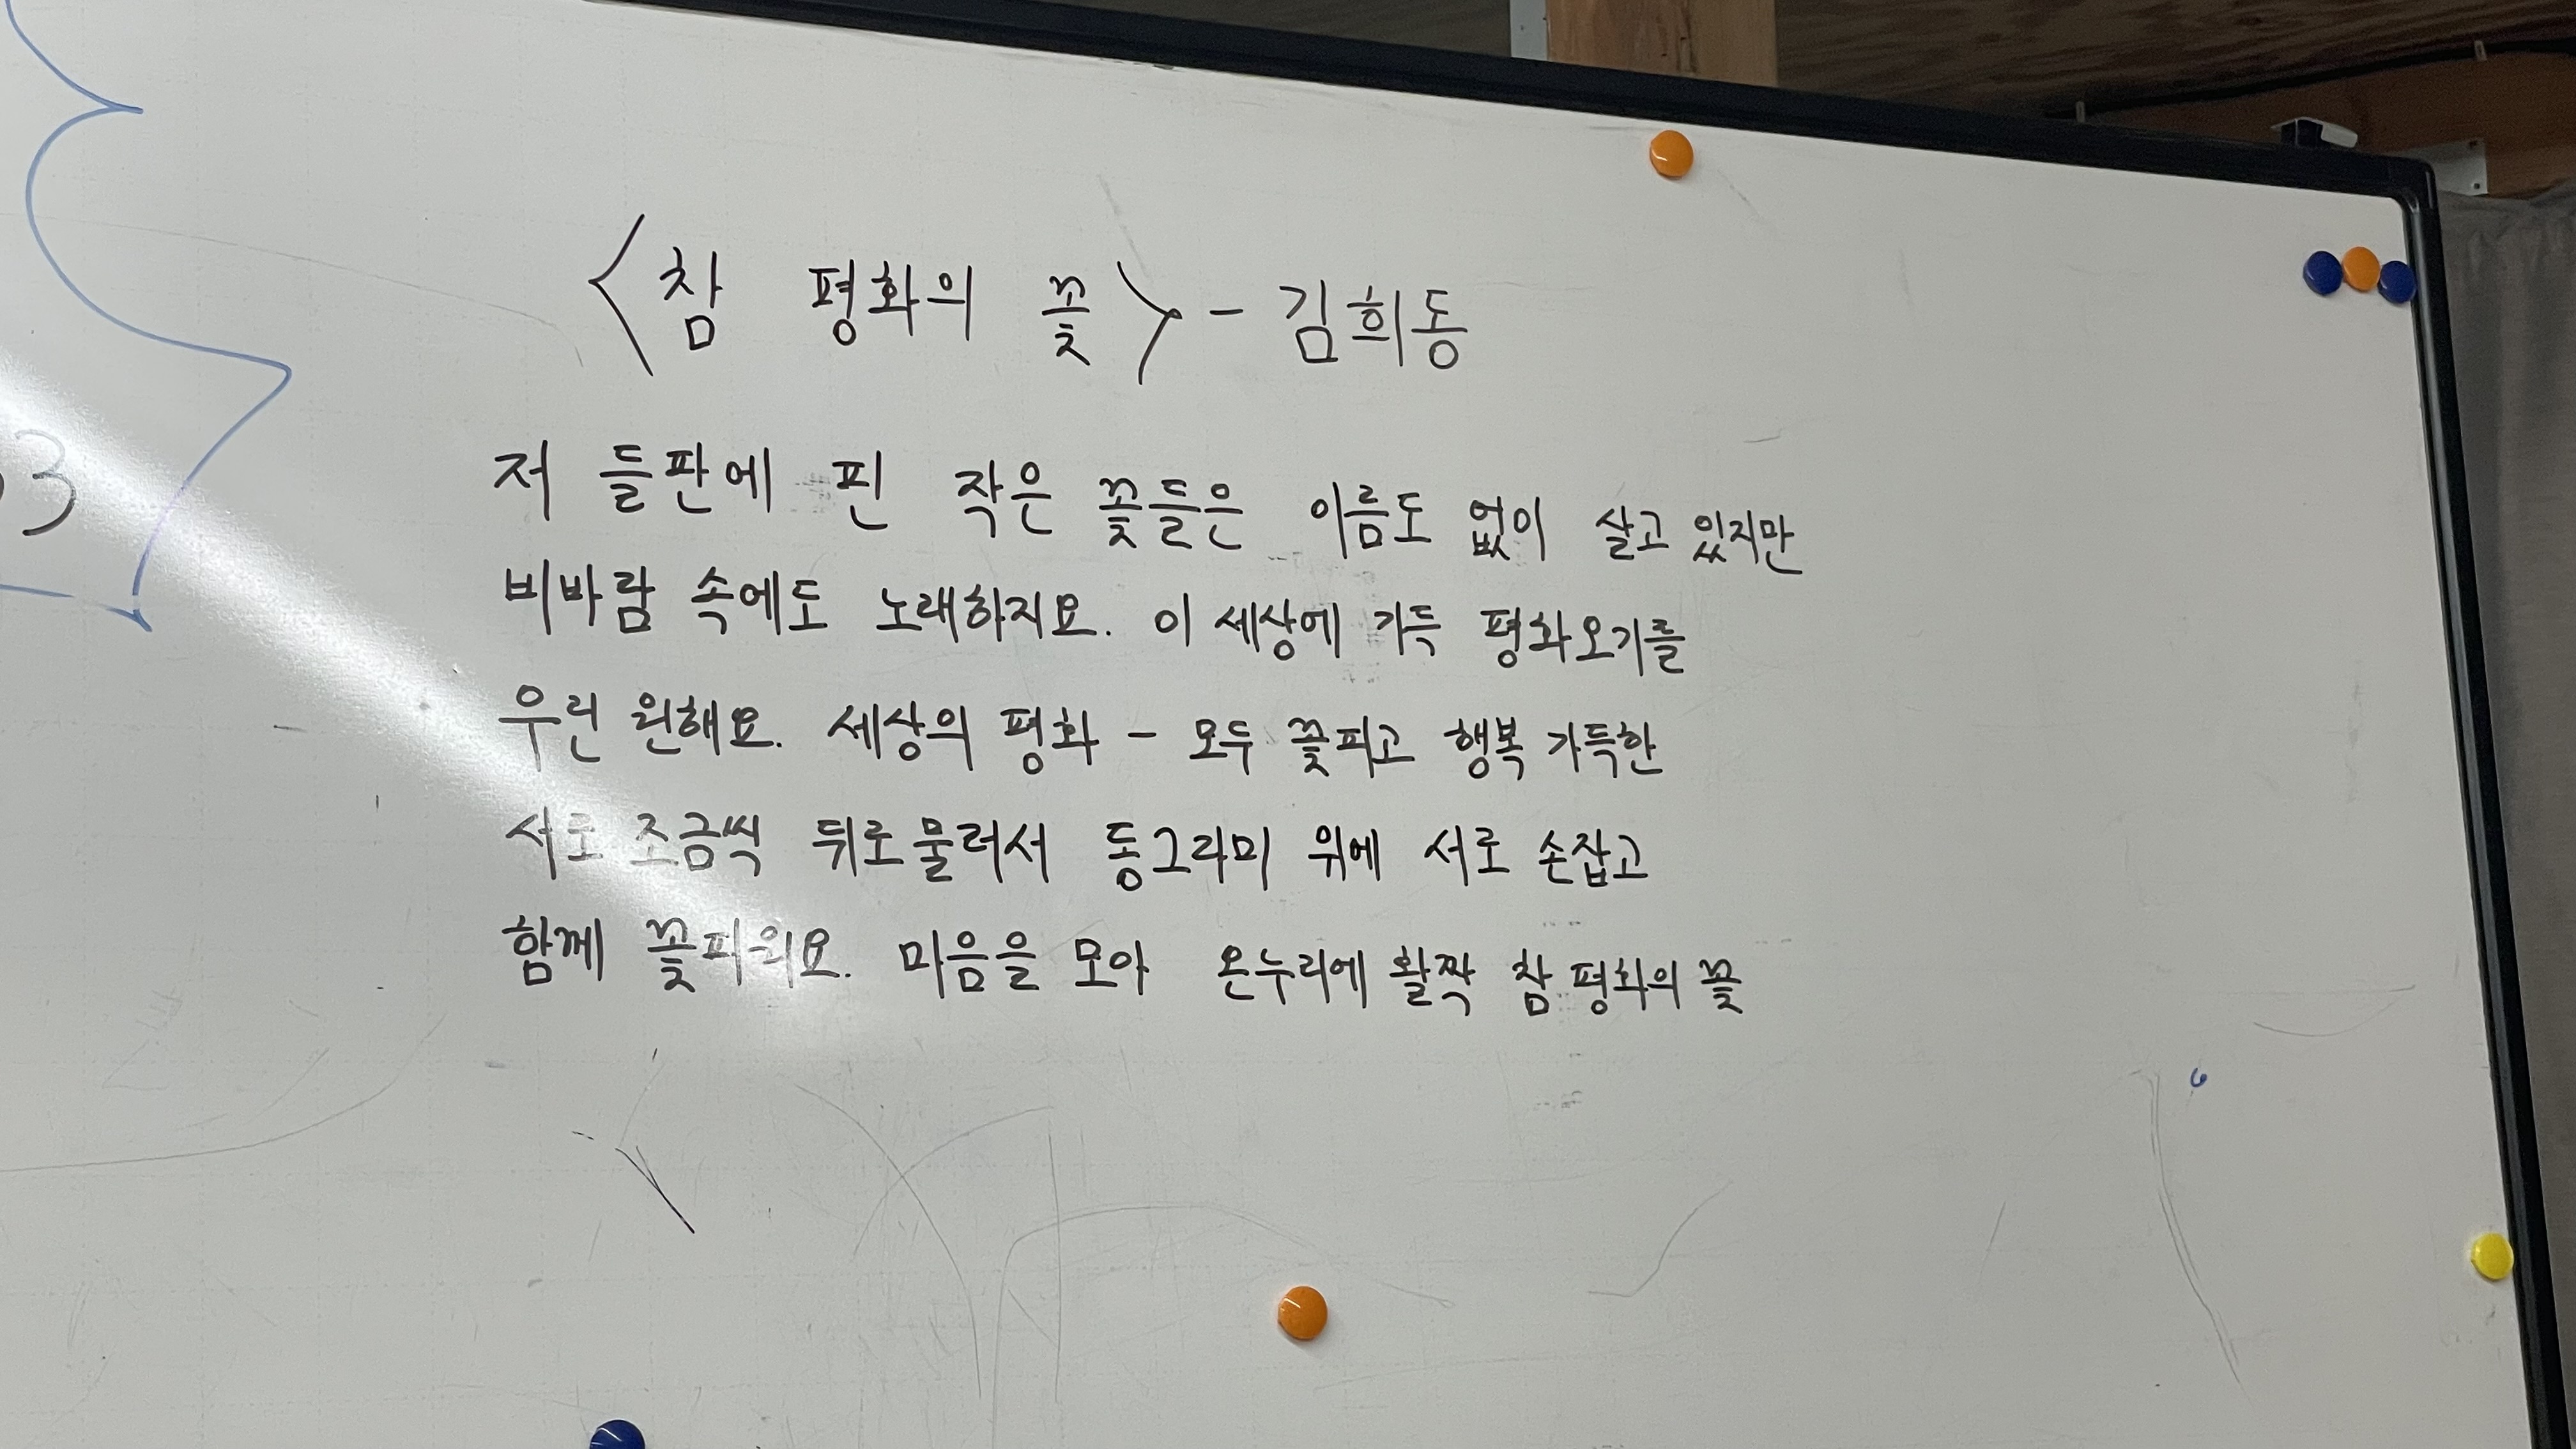 <참 평화의 꽃> - 김희동
저 들판에 핀 작은 꽃들은 이름도 없이 살고 있지만
비바람 속에도 노래하지요. 이 세상에 가득 평화오기를
우린 원해요. 세상의 평화 - 모두 꽃피고 행복 가득한
서로 조금씩 뒤로 물러서 동그라미 위에 서로 손잡고
함께 꽃피워요. 마음을 모아 온누리에 활짝 참 평화의 꽃
3